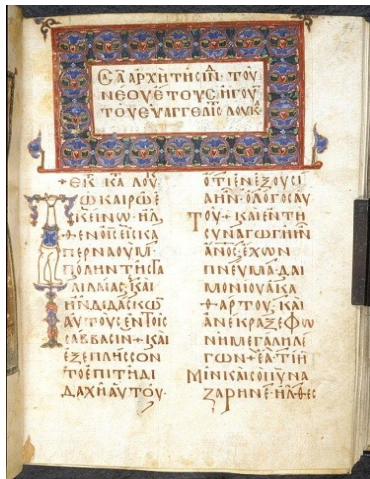 ΑΡΧΗ ΤΗC ΙΝ. ΤΟΥ
ΝΕΟΥ ΕΤΟΥC· ΗΓΟΥ
ΤΟΥ ΕΥΑΓΓΕΛΙC ΛΟΥΚ
+ΕΚ ΚΑ ΛΟΥ·
ΤΩ ΚΑΙΡΩ Ε
ΚΕΙΝΩ· ΗΛ
ΘΕΝ Ο ΙC ΕΙC ΚΑ
ΠΕΡΝΑΟΥΜ·
ΠΟΛΗΝ ΤΗC ΓΑ
ΛΙΛΑΙΑC· ΚΑΙ
ΗΝ ΔΙΔΑCΚΩ
ΑΥΤΟΥC ΕΝ ΤΟΙC
CΑΒΒΑCΙΝ+ΚΑΙ
ΕΞΕΠΛΗCCΟΝ
ΤΟ ΕΠΙ ΤΗ ΔΙ
ΔΑΧΗ ΑΥΤΟΥ·
ΟΤΙ ΕΝ ΕΞΟΥCΙ
Α ΗΝ Ο ΛΟΓΟC ΑΥ
ΤΟΥ+ΚΑΙ ΕΝ ΤΗ
CΥΝΑΓΩΓΗ ΗΝ
ΑΝΟC ΕΧΩΝ
ΠΝΕΥΜΑ ΔΑΙ
ΜΟΝΙΟΥ ΑΚΑ
ΘΑΡΤΟΥ· ΚΑΙ
ΑΝΕΚΡΑΞΕ ΦΩ
ΝΗ ΜΕΓΑΛΗ ΛΕ
ΓΩΝ+ΕΑ ΤΙ Η
ΜΙΝ ΚΑΙ CΟΙ ΙΥ ΝΑ
ΖΑΡΗΝΕ· ΗΛΘΕC